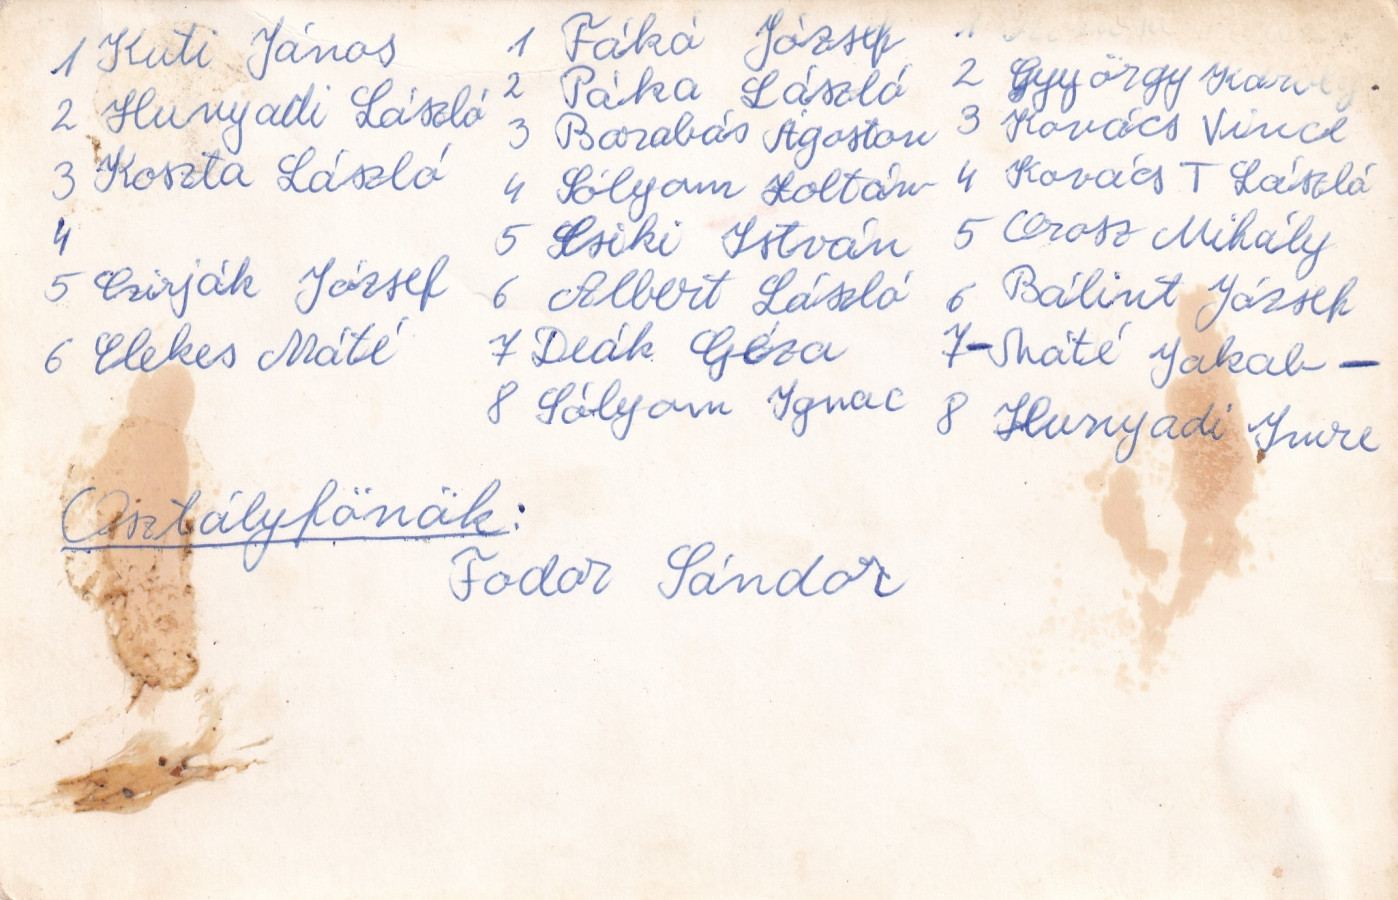 1 Kuti János
2 Hunyadi László
3 Koszta László
4
5 Czirják József
6 Elekes Máté
1 Fákó József
2 Páka László
3 Barabás Ágoston
4 Sólyom Zoltán
5 Csiki István
6 Albert László
7 Deák Géza
8 Sólyom Ignac
1
2 György Károly
3 Kovács Vince
4 Kovács T László
5 Orosz Mihály
6 Bálint József
7- Máté Jakab -
8 Hunyadi Imre
Osztályfönök:
Fodor Sándor